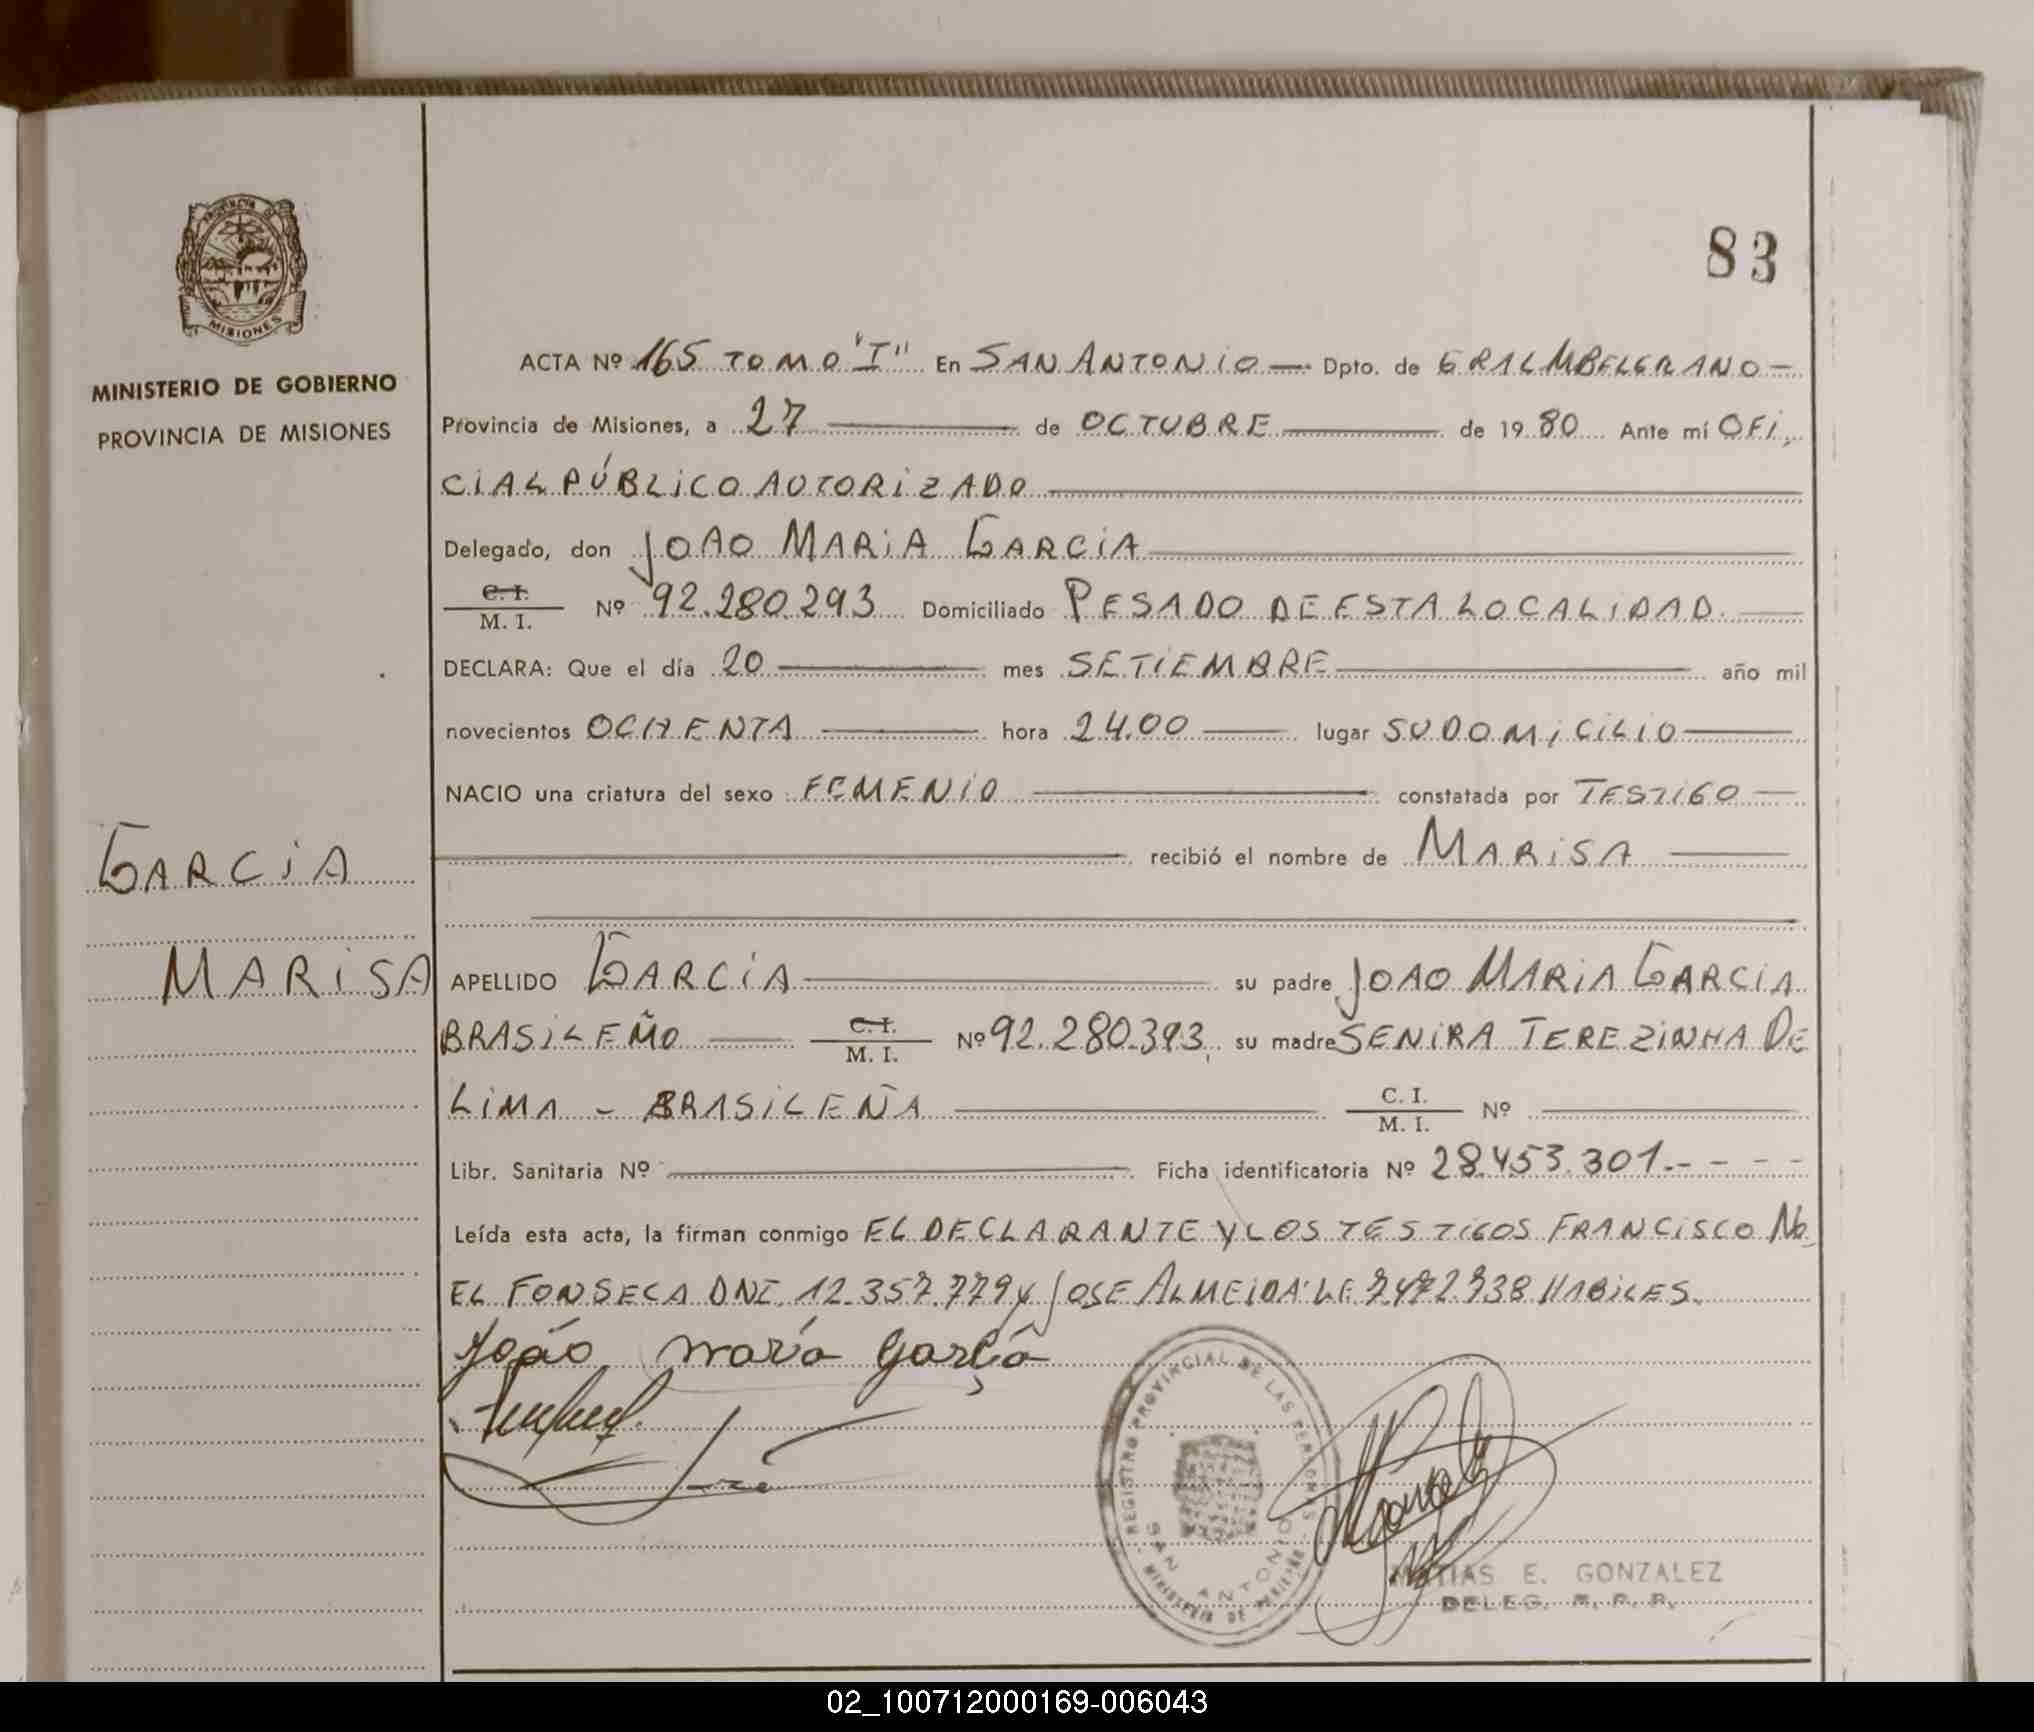 83
PROVINCIA DE
MISIONES
MINISTERIO DE GOBIERNO
PROVINCIA DE MISIONES
GARCIA
MARISA
ACTA Nº 165 TOMO "I" En SAN ANTONIO — Dpto. de GRAL MBELGRANO —
Provincia de Misiones, a 27 de OCTUBRE de 1980 Ante mí OFI,
CIAL PÚBLICO AUTORIZADO
Delegado, don JOAO MARIA GARCIA
C. I.
M. I. Nº 92.280.293 Domiciliado PESADO DE ESTA LOCALIDAD.
DECLARA: Que el día 20 mes SETIEMBRE año mil
novecientos OCHENTA hora 24.00 lugar SU DOMICILIO
NACIO una criatura del sexo FEMENIO constatada por TESTIGO
recibió el nombre de MARISA
APELLIDO GARCÍA su padre JOAO MARIA GARCIA
BRASILEÑO C. I.
M. I. Nº 92.280.393, su madre SENIRA TEREZINHA DE
LIMA - BRASILEÑA C. I.
M. I. Nº
Libr. Sanitaria Nº Ficha identificatoria Nº 28.453.301.- - - -
Leída esta acta, la firman conmigo EL DECLARANTE Y LOS TESTIGOS FRANCISCO NO
EL FONSECA DNI. 12.357.779 y JOSE ALMEIDA LE 7.472.738 HABILES.
João maría Garçía
REGISTRO PROVINCIAL DE LAS PERSONAS
SAN ANTONIO
MINISTERIO DE GOBIERNO
MATIAS E. GONZALEZ
DELEG. R. P. P.
02_100712000169-006043